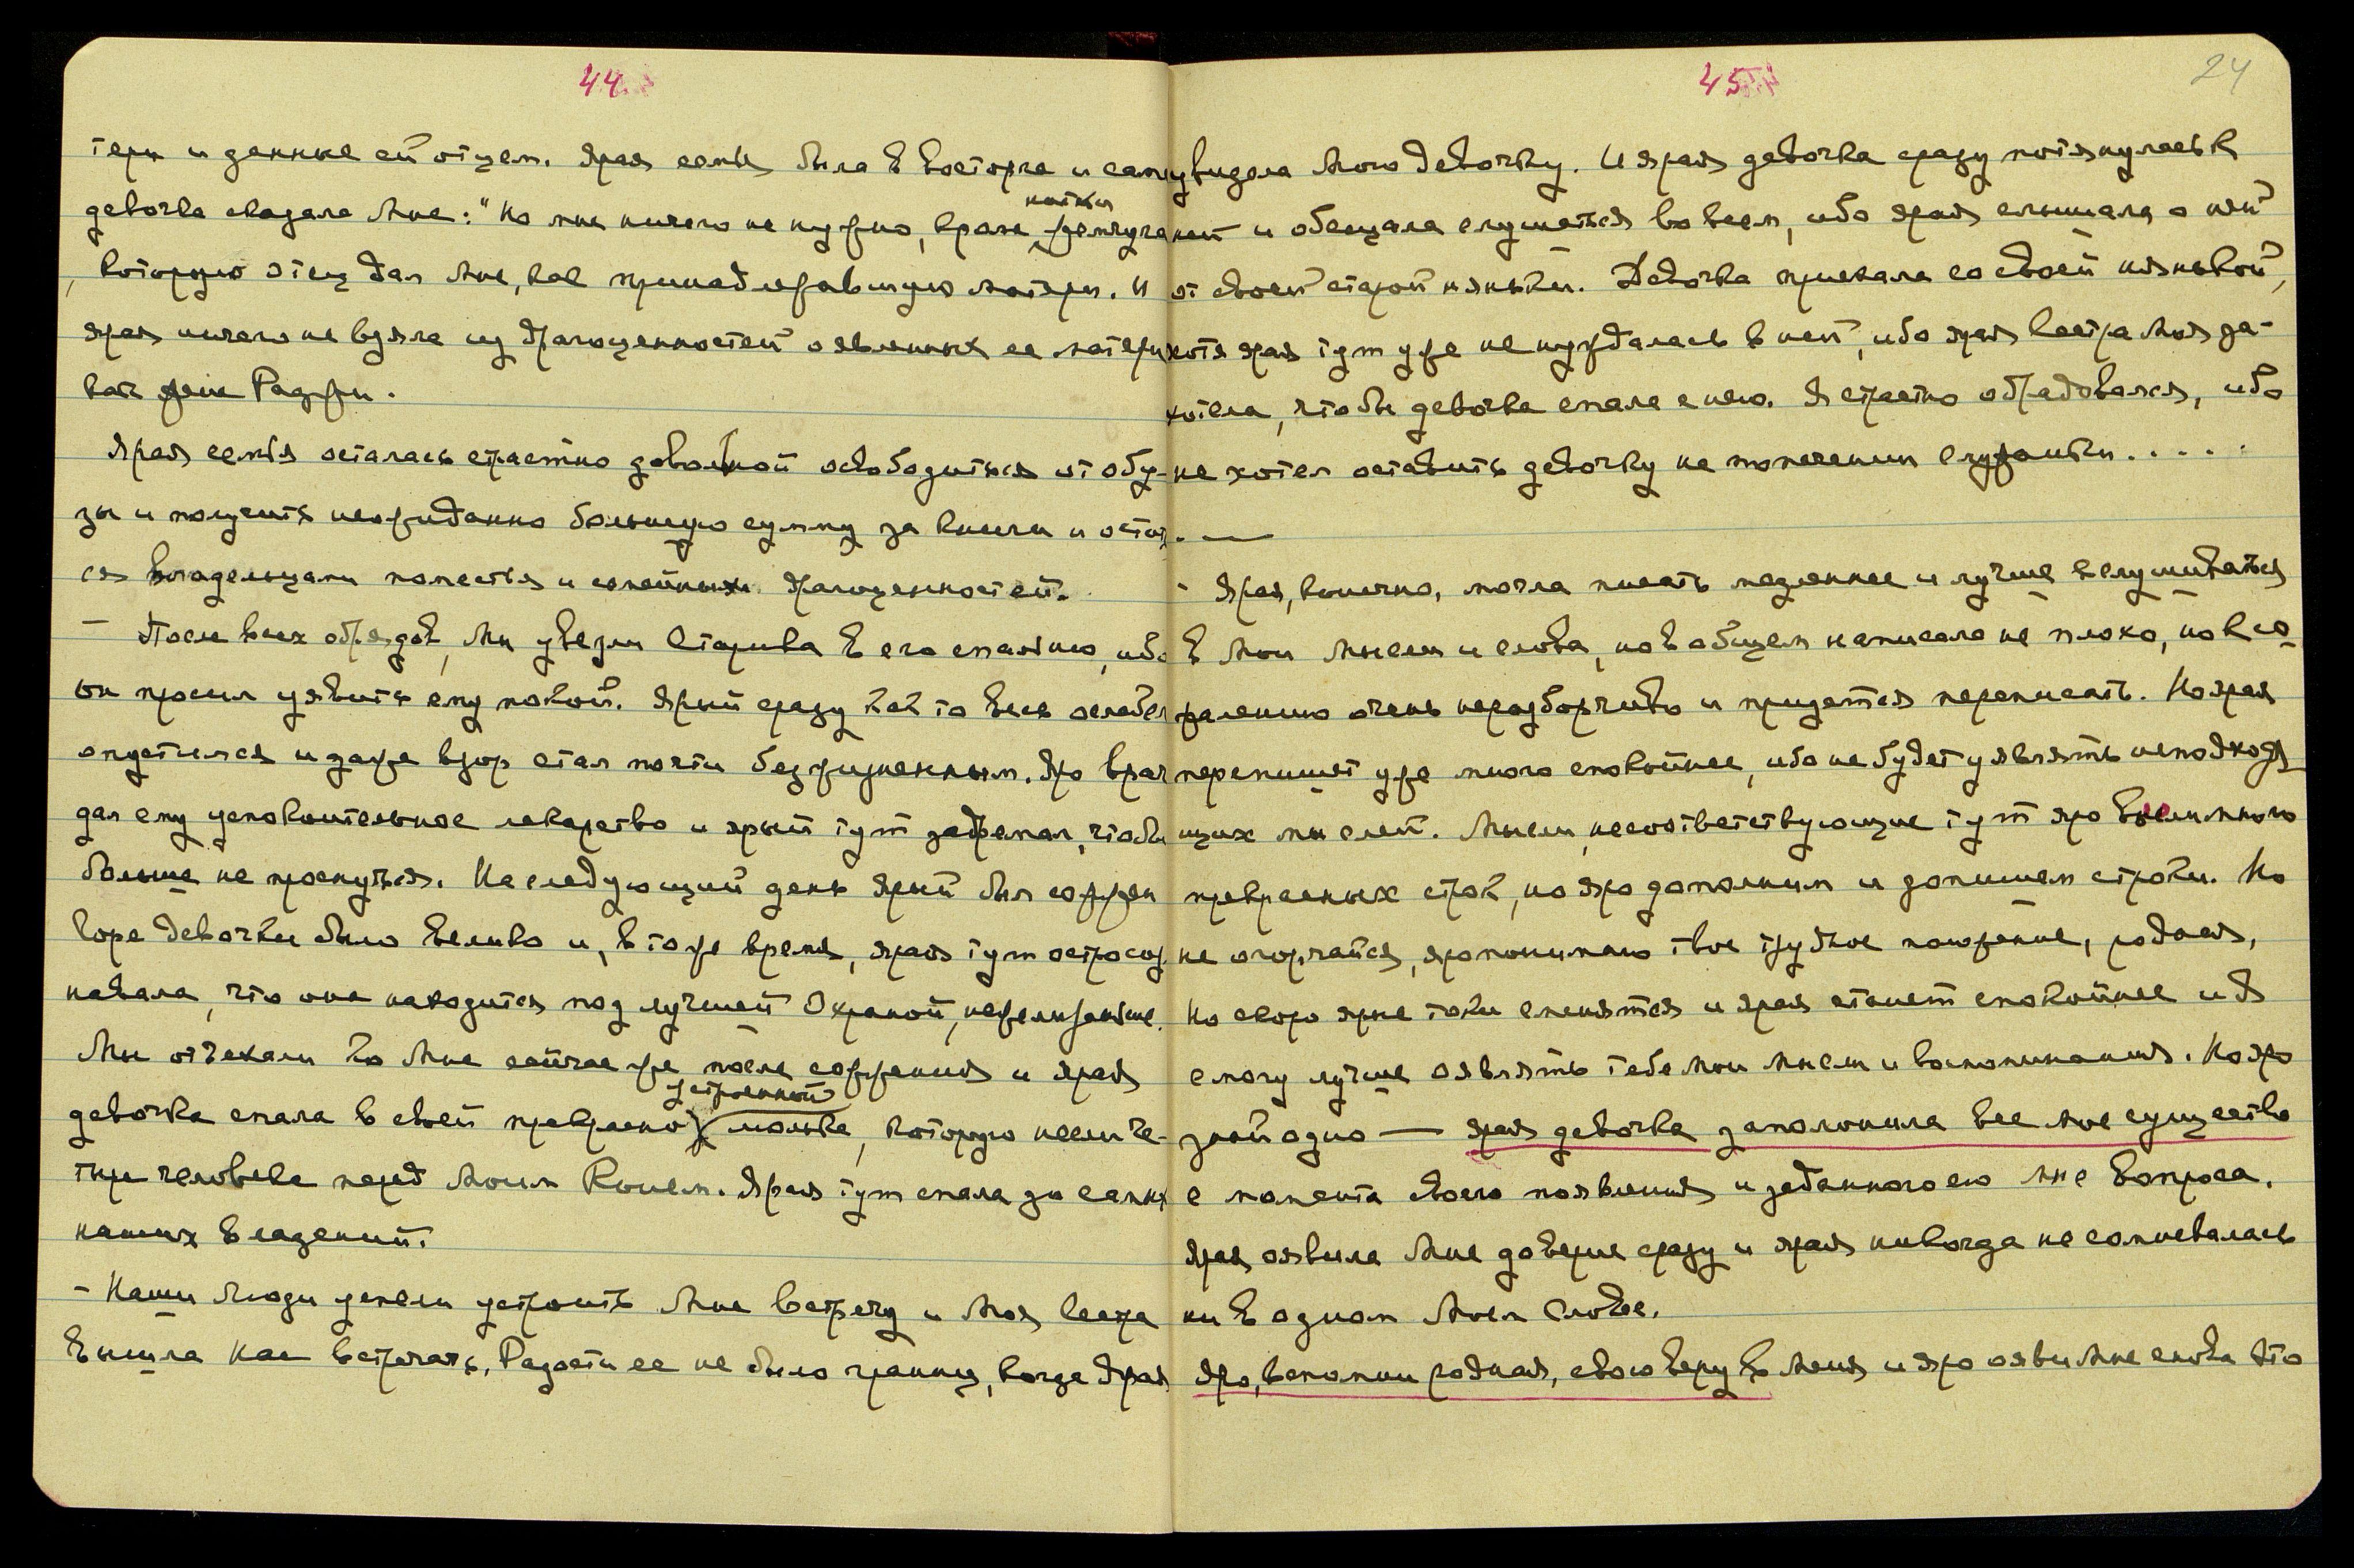 44.
тери и данные ей отцем. Ярая семья была в восторге и сама
девочка сказала Мне: "Но мне ничего не нужно, кроме нитки жемчуга
которую отец дал Мне, как принадлежавшую матери. И
ярая ничего не взяла из драгоценностей оявленных ее матери
как жене Раджи.
Ярая семья осталась страстно довольной освободиться от обу-
зы и получить неожиданно большую сумму за книги и остат.
ся владельцами поместья и семейных драгоценностей.
– После всех обрядов, Мы увезли Старика в его спальню, ибо
он просил уявить ему покой. Ярый сразу как то весь ослабел
опустился и даже взор стал почти безжизненным. Яро врач
дал ему успокоительное лекарство и ярый тут задремал, чтобы
больше не проснуться. На следующий день Ярый был сожжен
Горе девочки было велико и, в то же время, ярая тут остро соз.
навала, что она находится под лучшей Охраной, нежели раньше.
Мы отъехали ко Мне сейчас же после сожжения и ярая
девочка спала в своей прекрасно устроенной люльке, которую несли че-
тыре человека перед Моим Конем. Ярая тут спала до самых
наших владений.
– Наши люди успели устроить Мне встречу и Моя сестра
вышла нас встречать. Радости ее не было границ, когда Ярая
45.
24
увидела Мою девочку. И ярая девочка сразу потянулась к
ней и обещала слушаться во всем, ибо ярая слышала о ней
от своей старой няньки. Девочка приехала со своей нянькой,
хотя ярая тут уже не нуждалась в ней, ибо ярая сестра Моя за-
хотела, чтобы девочка спала с нею. Я страстно обрадовался, ибо
не хотел оставить девочку на попечении служанки. . . . .
. —
– Ярая, конечно, могла писать медленнее и лучше вслушиваться
в Мои Мысли и слова, но в общем написала не плохо, но к со-
жалению очень неразборчиво и придется переписать. Но ярая
перепишет уже много спокойнее, ибо не будет уявлять неподходя
щих мыслей. Мысли, несоответствующие тут яро внесли много
прекрасных строк, но яро дополним и допишем строки. Но
не огорчайся, яро понимаю твое трудное положение, родная,
Но скоро ярые токи сменятся и ярая станет спокойнее и Я
смогу лучше оявлять тебе Мои мысли и воспоминания. Но яро
знай одно — ярая девочка заполонила все Мое существо
с момента своего появления и заданного ею Мне вопроса.
Ярая оявила Мне доверие сразу и ярая никогда не сомневалась
ни в одном Моем Слове.
Яро, вспомни родная, свою веру в Меня и яро ояви Мне снова это